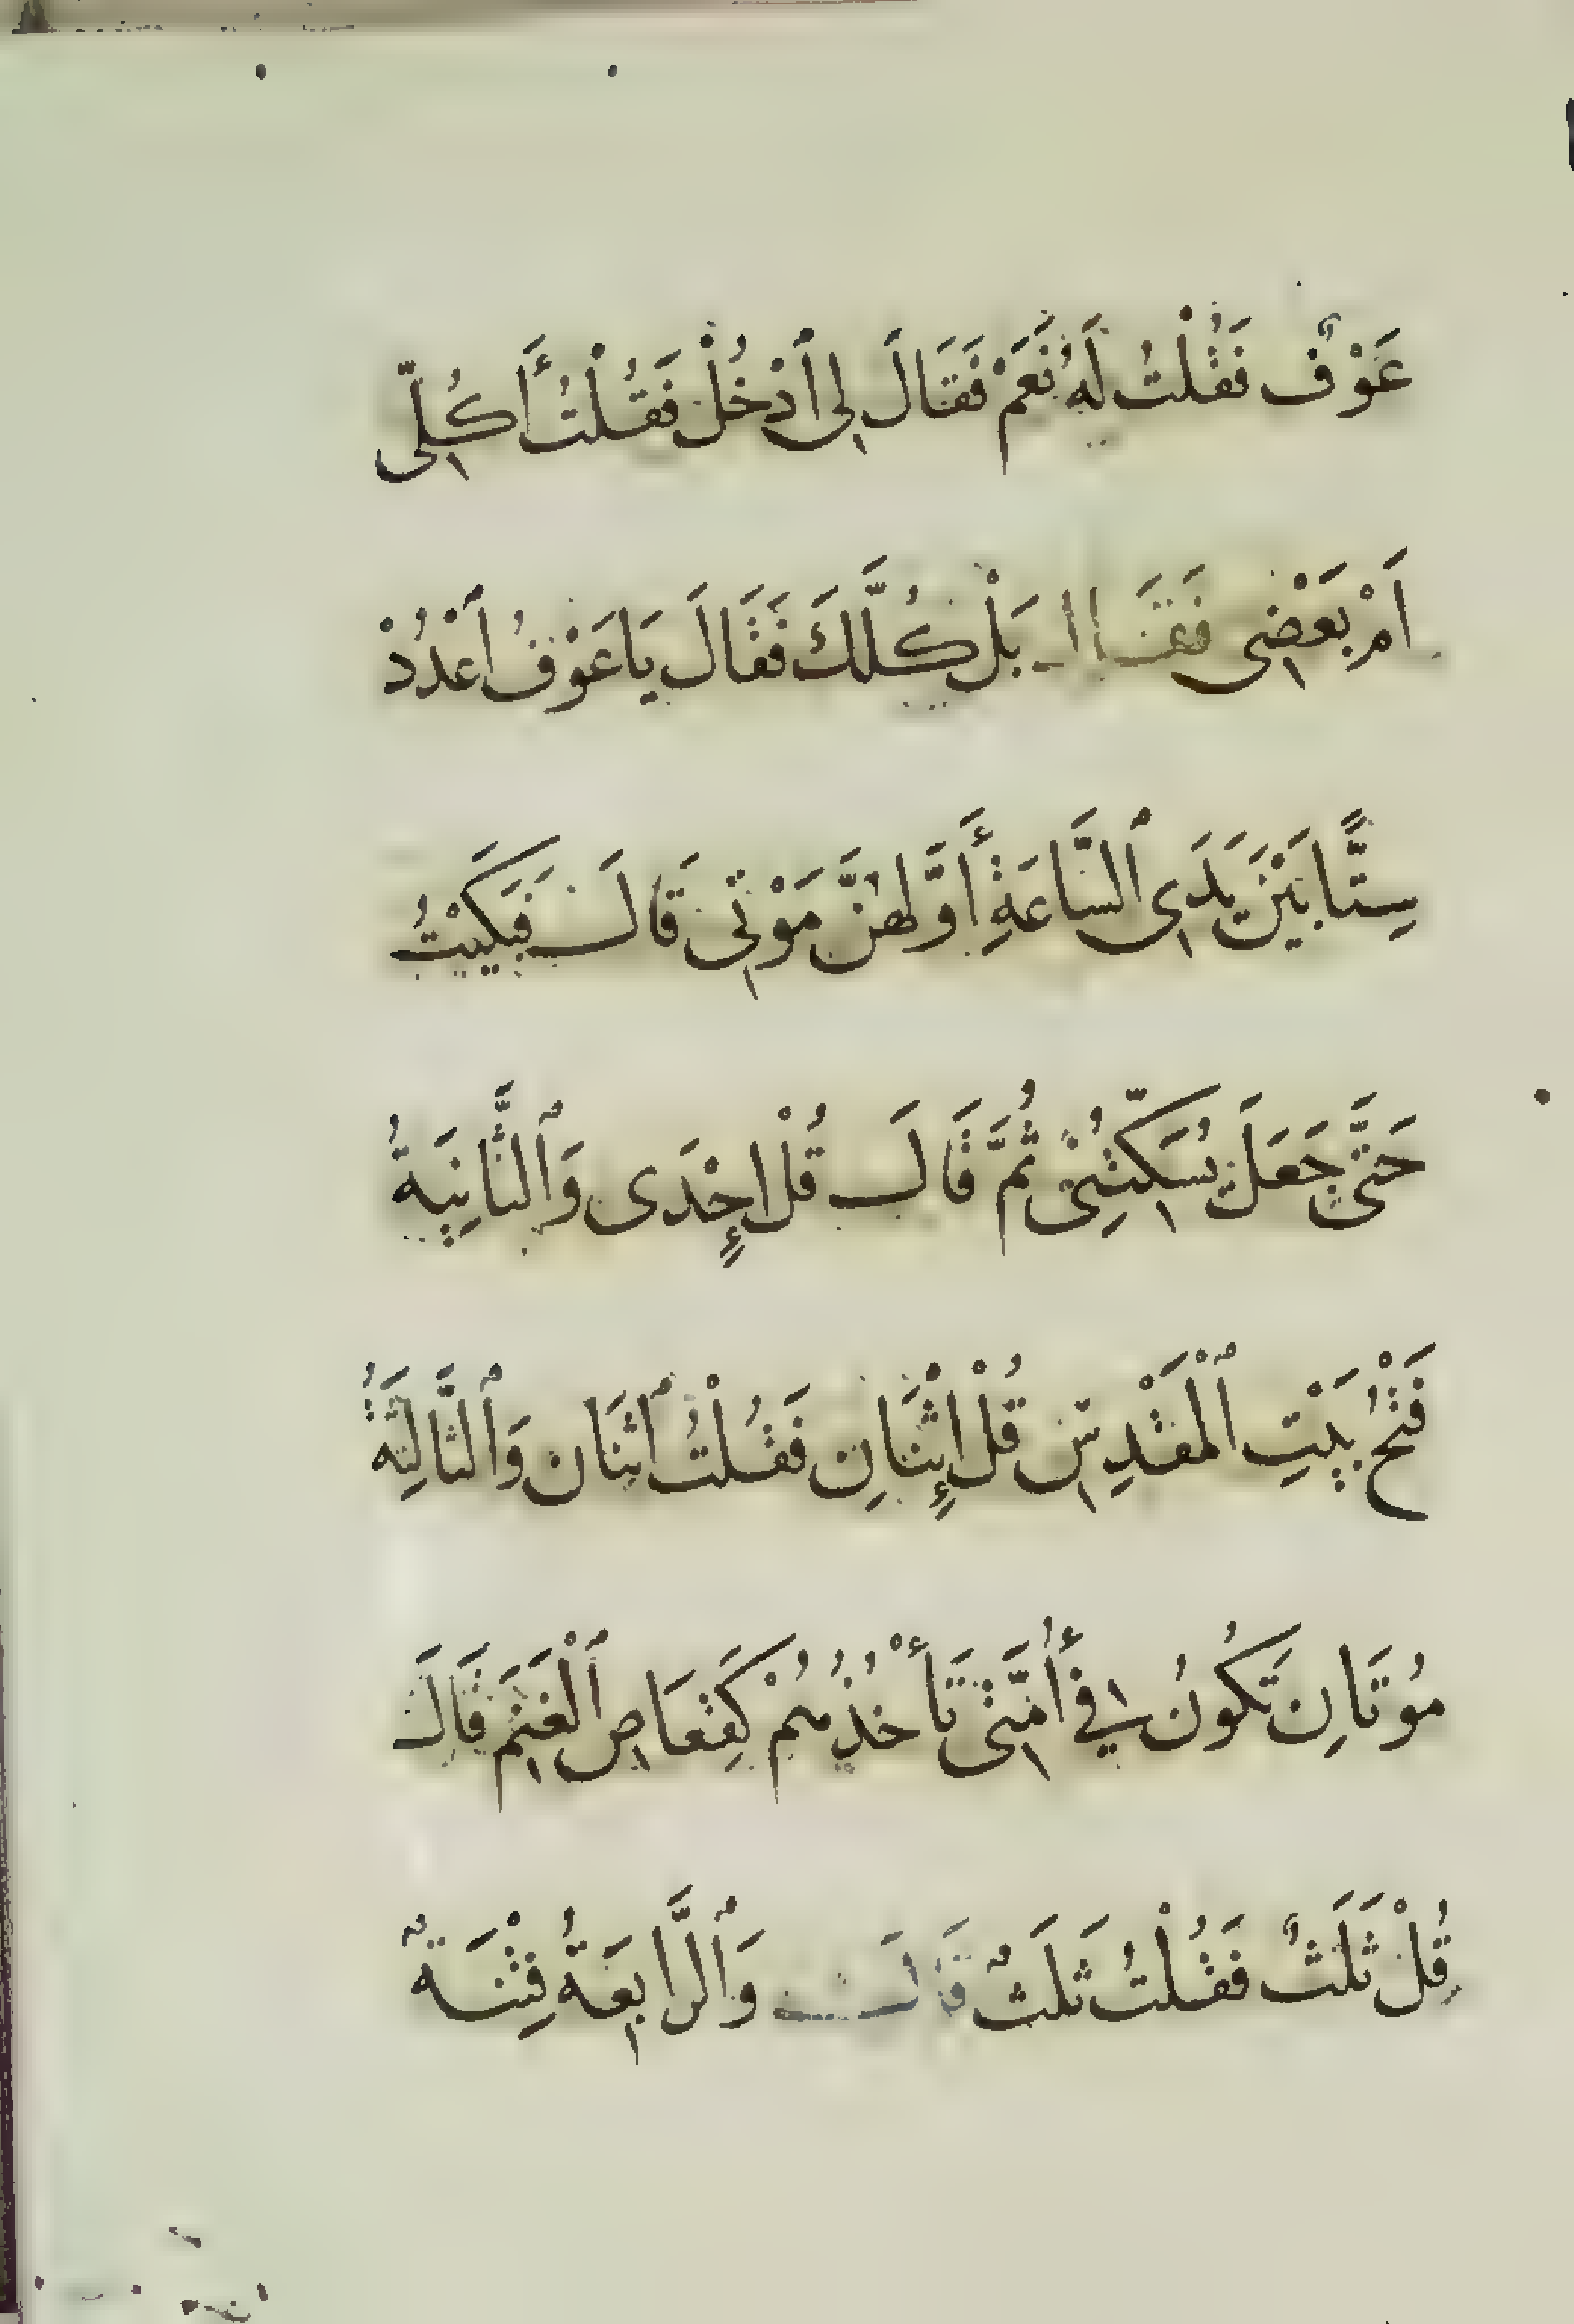 عَوْفٌ فَقُلْتُ لَهُ نَعَمْ فَقَالَ لِى ٱدْخُلْ فَقُلْتُ أَكُلِّى
اَمْ بَعْضِى فَقَالَ بَلْ كُلَّكَ فَقَالَ يَا عَوْفُ ٱعْدُدْ
سِتًّا بَيْنَ يَدَىِ ٱلسَّاعَةِ أَوَّلهُنَّ مَوْتِى قَالَ فَبَكَيْتُ
حَتَّى جَعَلَ يُسَكِّتُنِى ثُمَّ قَالَ قُلْ إِحْدَى وَٱلثَّانِيَةُ
فَتْحُ بَيْتِ ٱلْمَقْدِسِ قُلْ إِثْنَانِ فَقُلْتُ ٱثْنَان وَٱلثَّالِثَةُ
مُوتَانِ تَكُونُ فِي أُمَّتِى تَأْخُذُهُمْ كَقِعَاصِ ٱلْغَنَمِ قَالَ
قُلْ ثَلَثٌ فَقُلْتُ ثَلَثٌ قَالَ وَٱلرَّابِعَةُ فِتْنَةٌ